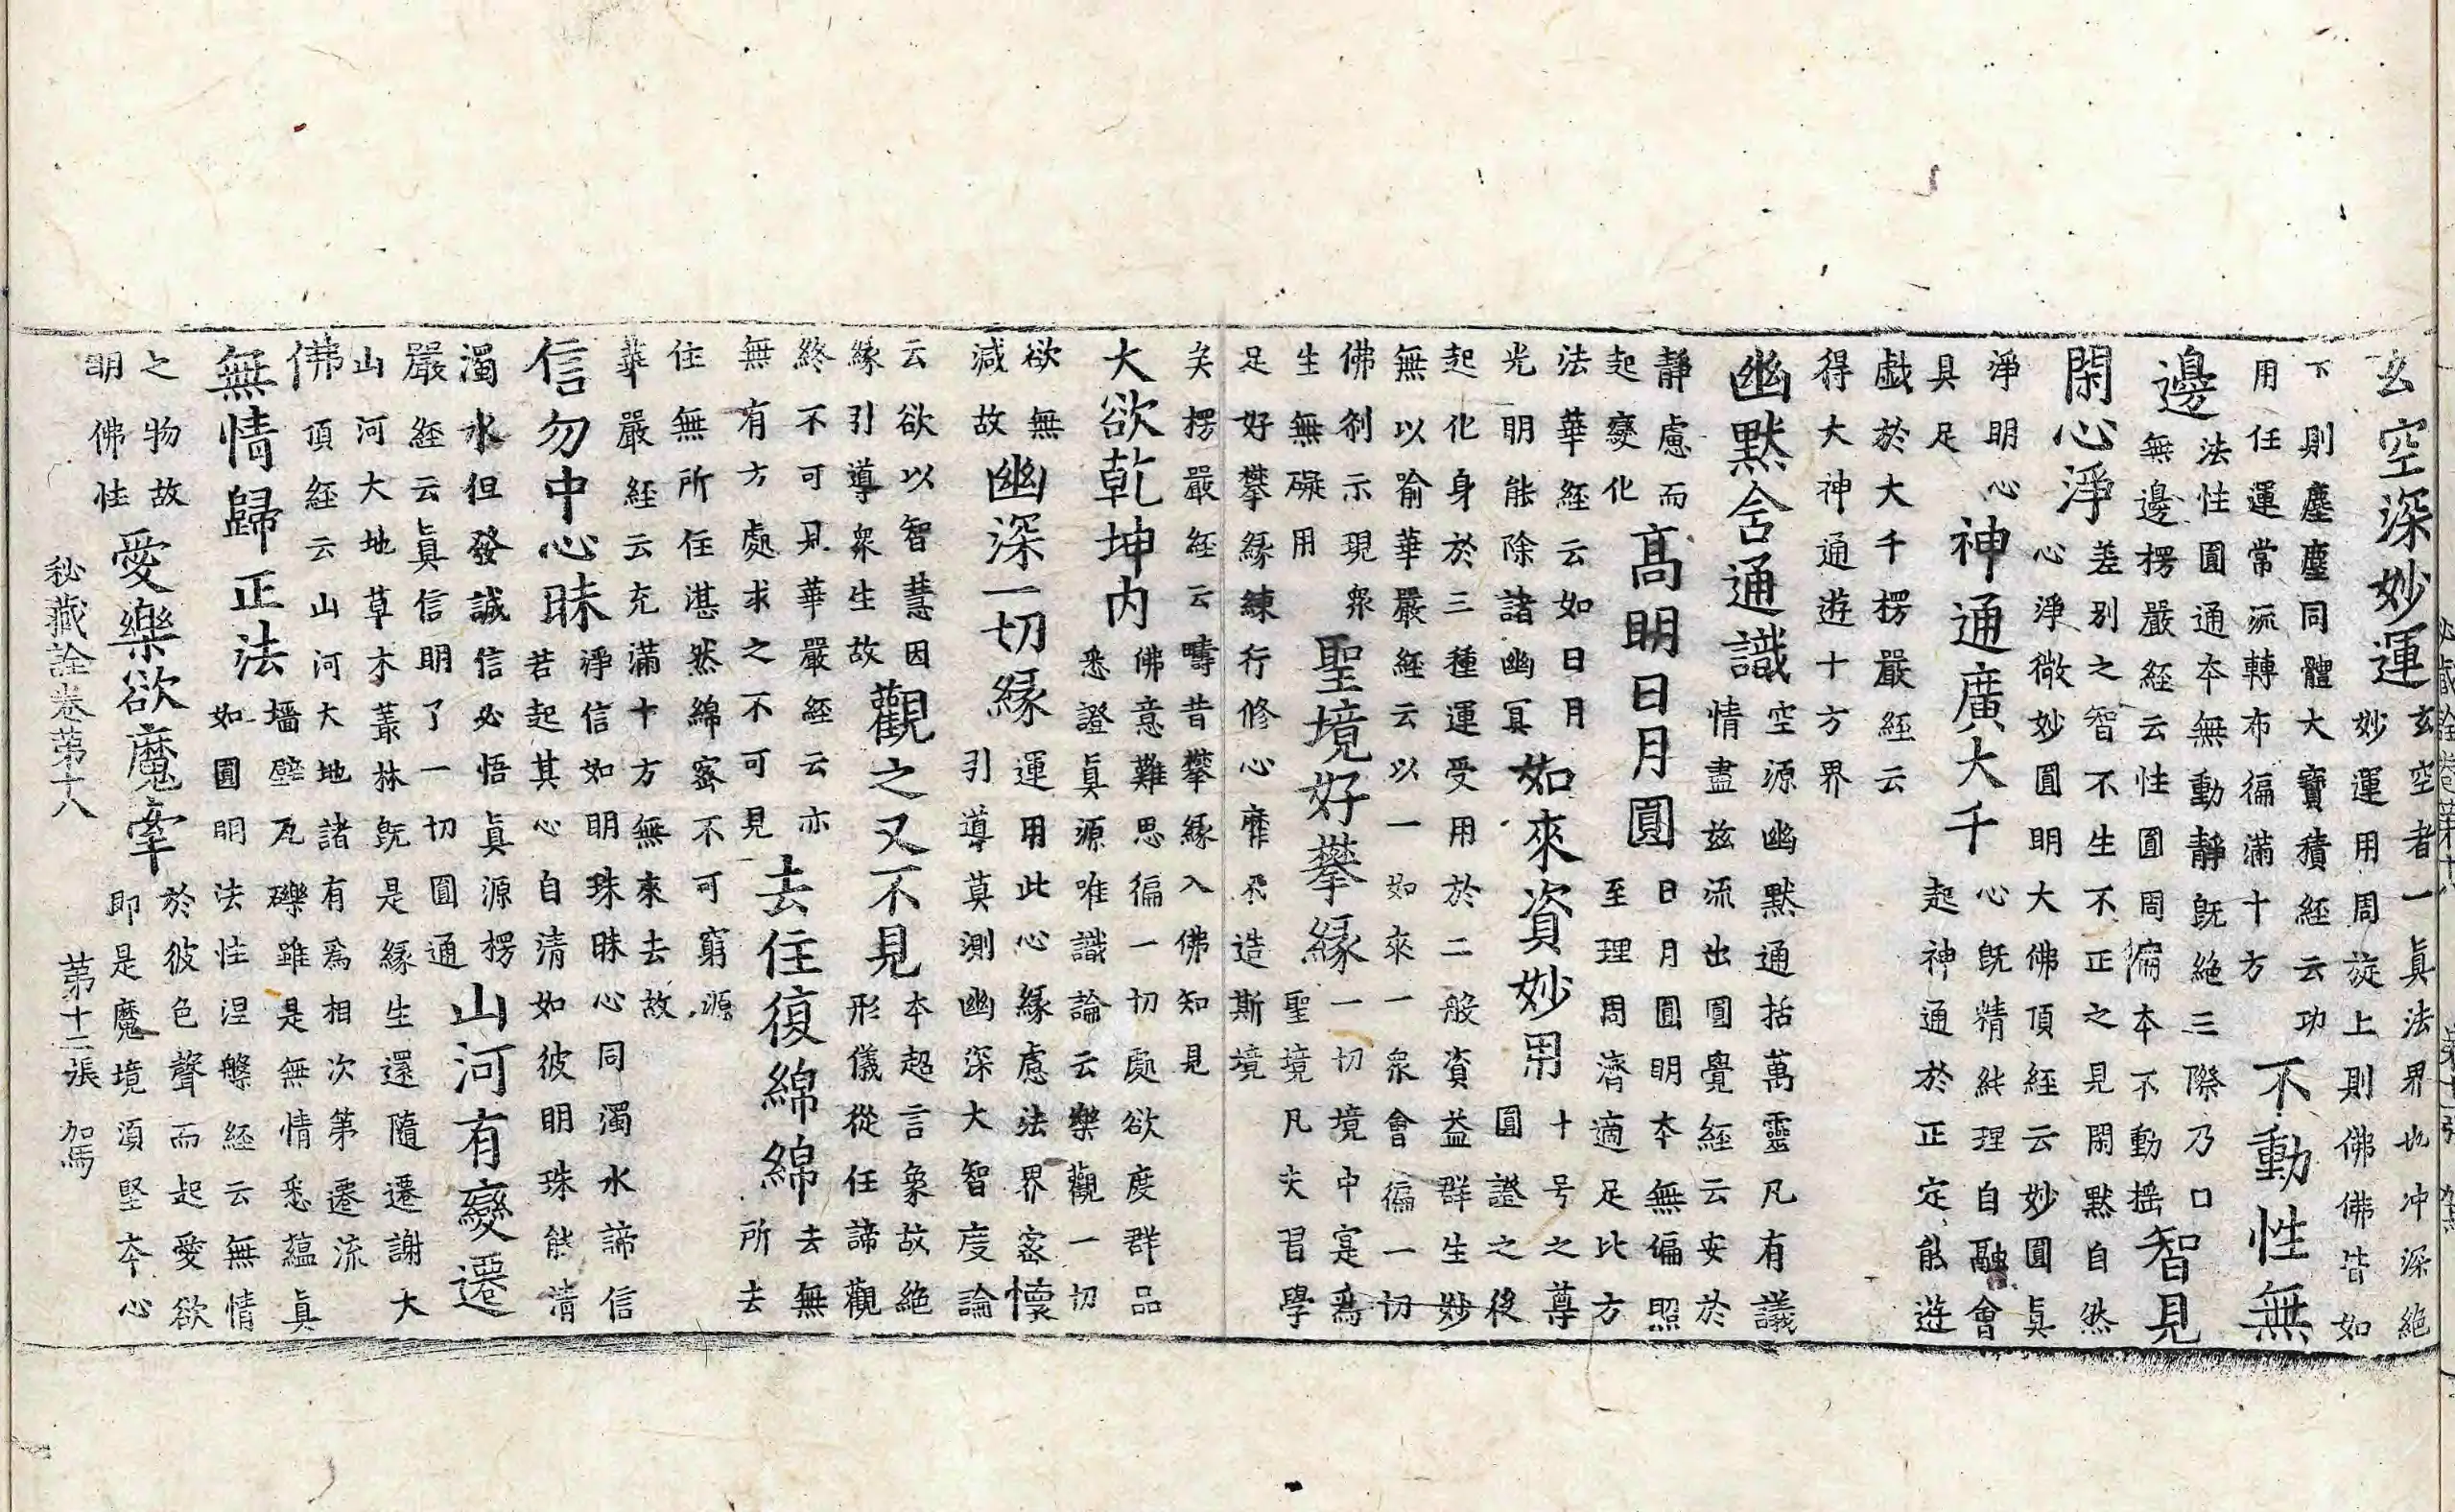 玄空深妙運玄空者一真法界也冲深絶妙運用周旋上則佛佛皆如
下則塵塵同體大寶積經云功用任運常流轉布徧滿十方不動性無
邊法性圓通本無動靜既絶三際乃口無邊楞嚴經云性圓周徧本不動摇智見
閑心淨差别之智不生不正之見閑默自然心淨微妙圓明大佛頂經云妙圓真
淨明心具足神通廣大千心既精純理自融會起神通於正定能遊
戱於大千楞嚴經云得大神通遊十方界
幽默含通識空源幽默通括萬靈凡有議情盡兹流出圓覺經云安於
静慮而起變化髙明日月圓日月圓明本無偏照至理周濟適足比方
法華經云如日月光明能除諸幽冥如來資妙用十号之尊圓證之後
起化身於三種運受用於二般資益群生妙無以喻華嚴經云以一如來一衆會徧一切
佛刹示現衆生無礙用聖境好攀縁一切境中寔爲聖境凡夫習學
足好攀縁練行修心靡不造斯境矣楞嚴經云疇昔攀縁入佛知見
大欲乾坤内佛意難思徧一切處欲度群品悉證真源唯識論云樂觀一切
欲無減故幽深一切縁運用此心縁慮法界密懷引導莫測幽深大智度論
云欲以智慧因縁引導衆生故觀之又不見本超言象故絶形儀從任諦觀
終不可見華嚴經云亦無有方處求之不可見去住復綿綿去無所去
住無所住湛然綿密不可窮源華嚴經云充滿十方無來去故
信勿中心昧淨信如明珠昧心同濁水諦信若起其心自清如彼明珠能清
濁水但發誠信必悟真源楞嚴經云真信明了一切圓通山河有變遷
山河大地草木叢林既是縁生還隨遷謝大佛頂經云山河大地諸有爲相次第遷流
無情歸正法墻壁瓦礫雖是無情悉藴真如圓明法性涅槃經云無情
之物故明佛性愛樂欲魔牽於彼色聲而起愛欲即是魔境須堅本心
秘藏詮卷第十八 第十二張 加馬